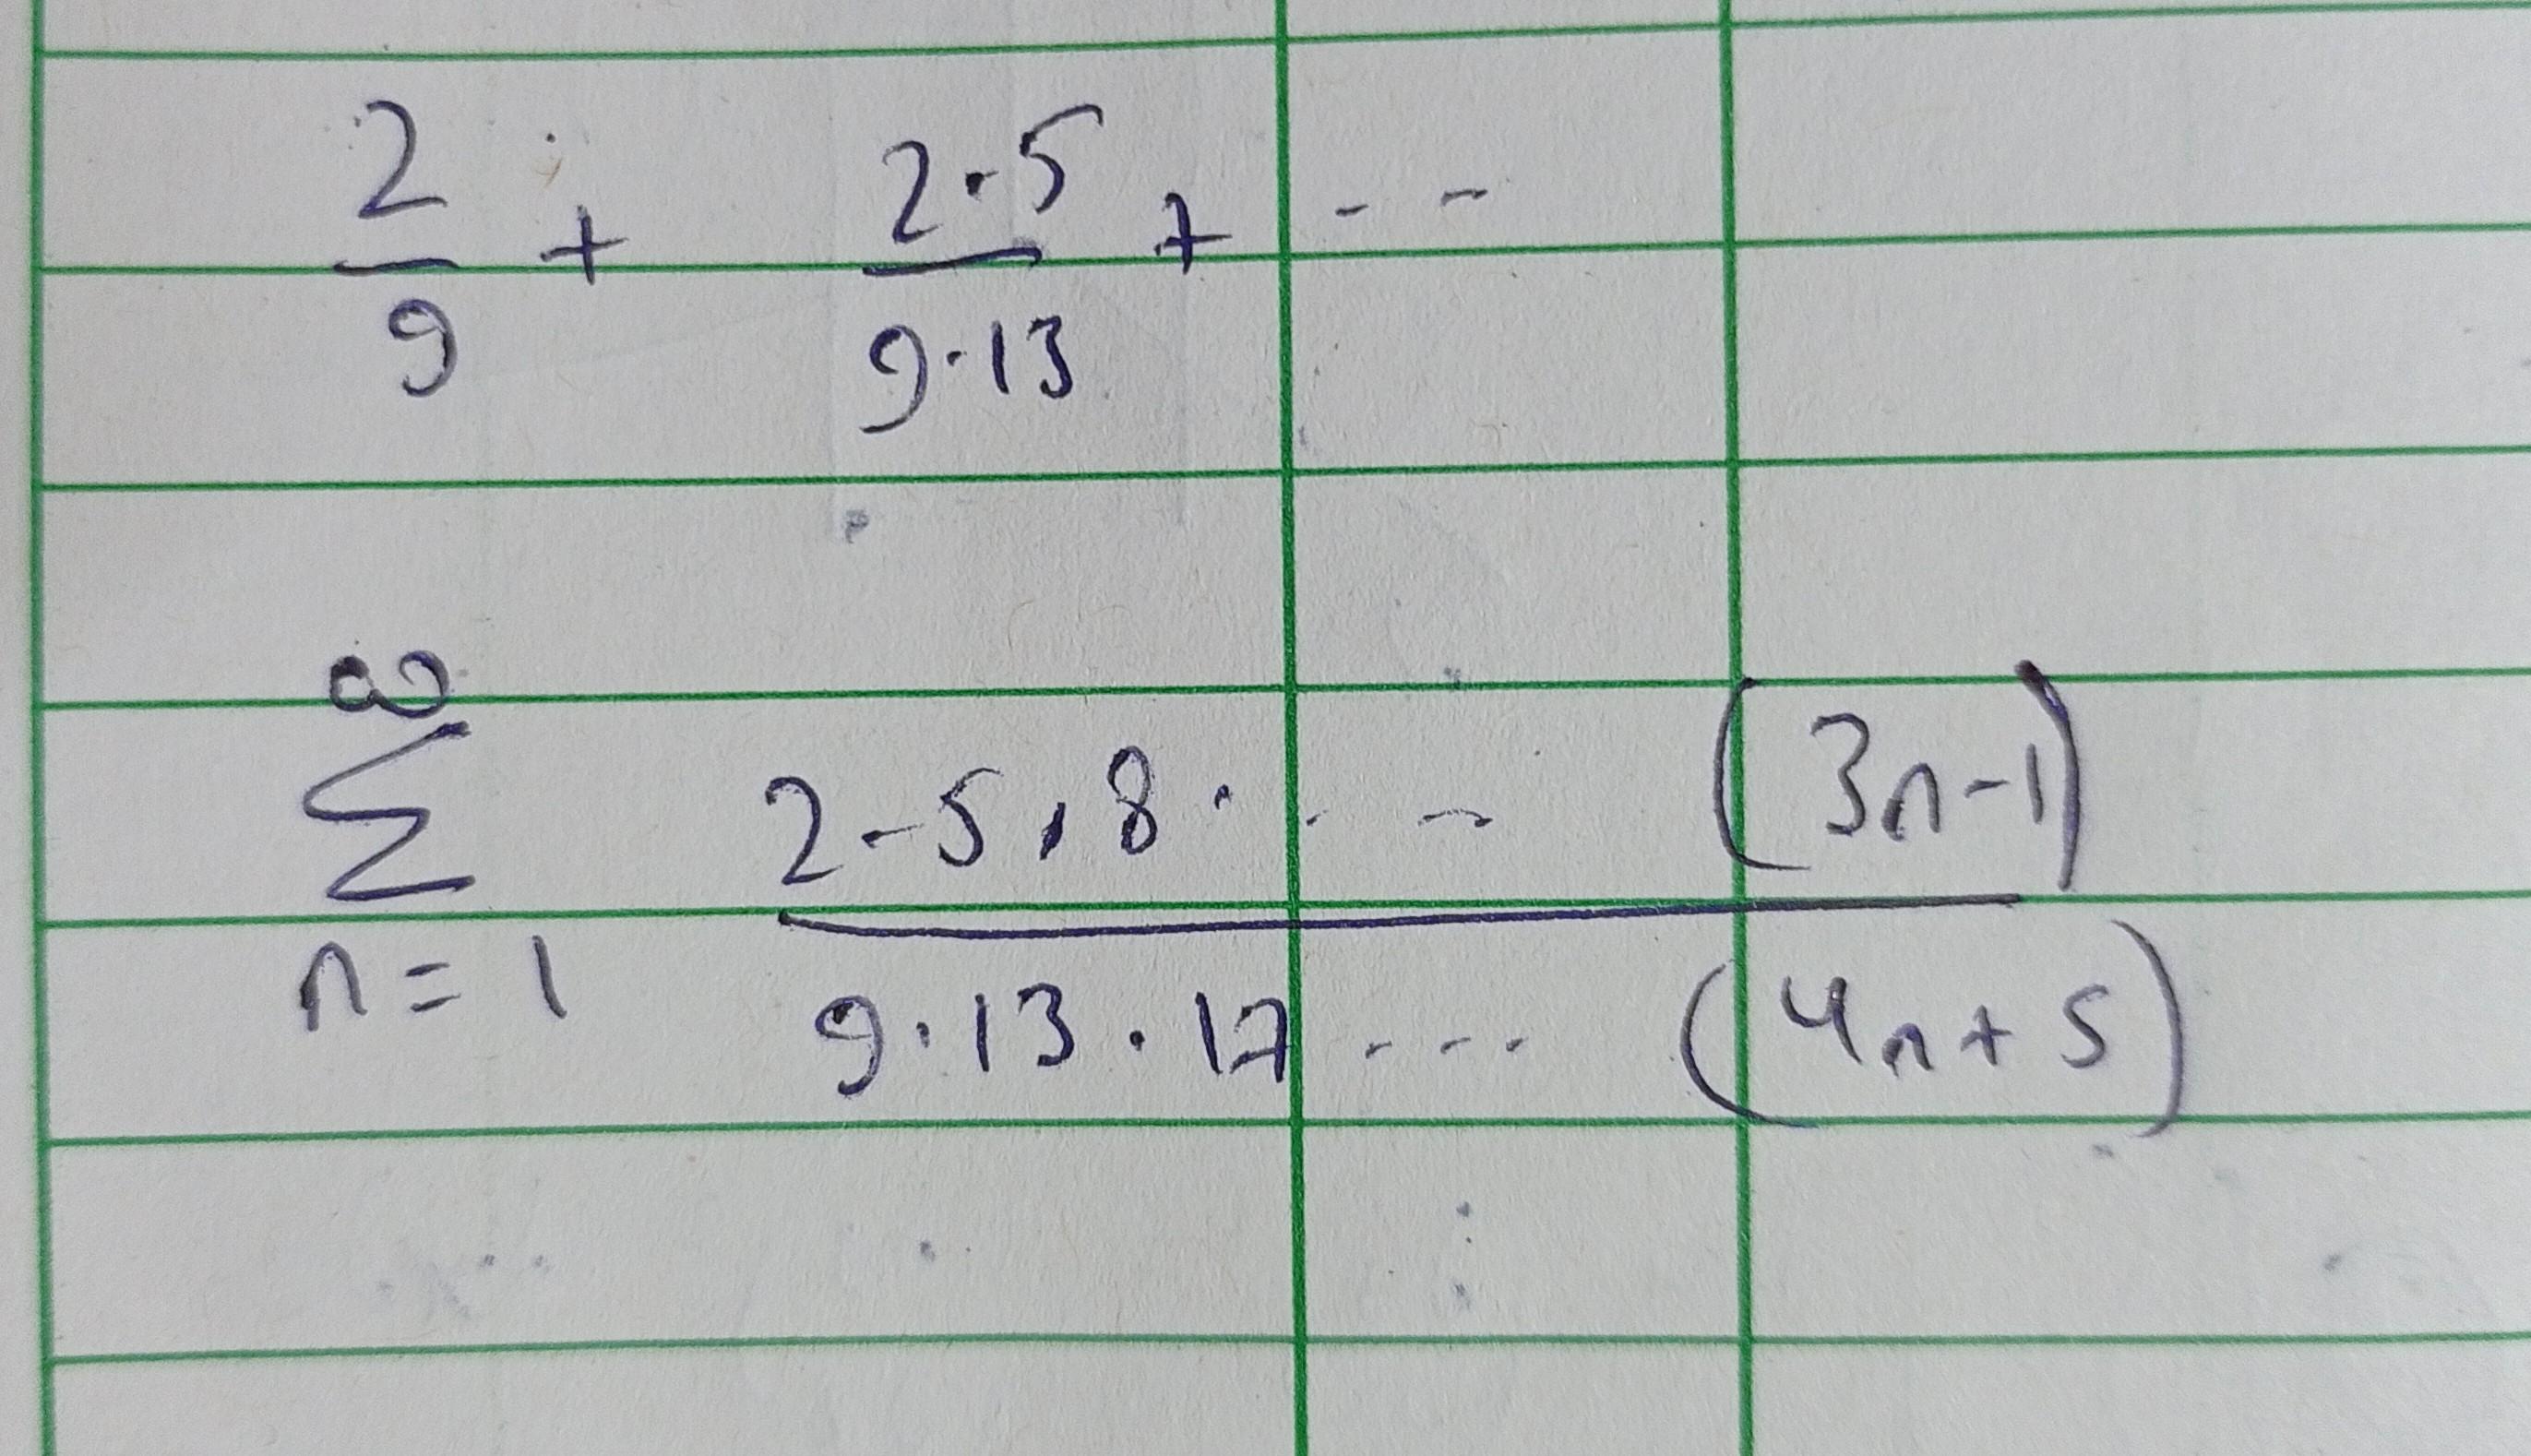 2/9 + 2·5/9·13 + - -
∞
∑ 2-5·8· · - (3n-1) / 9·13·17 - - - (4n+5)
n=1